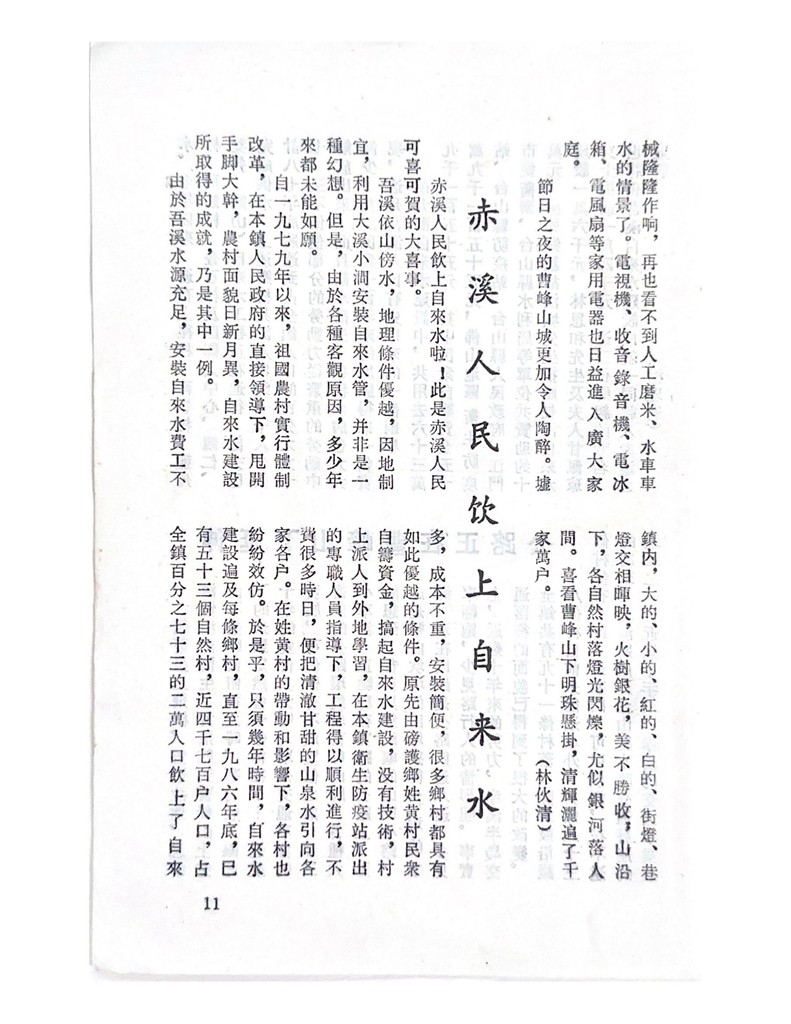 械隆隆作啊，再也看不到人工磨米、水車車
水的情景了。電視機、收音錄音機、電冰
箱、電風扇等家用電器也日益進入廣大家
庭。
節日之夜的曹峰山城更加令人陶醉。墟
鎮内，大的、小的、紅的、白的、街燈、巷
燈交相暉映，火樹銀花，美不勝收；山沿
下，各自然村落燈光閃爍，尤似銀河落人
間。喜看曹峰山下明珠懸掛，清輝灑遍了千
家萬户。　（林伙清）
赤溪人民饮上自来水
赤溪人民飲上自來水啦！此是赤溪人民
可喜可賀的大喜事。
吾溪依山傍水，地理條件優越，因地制
宜，利用大溪小澗安裝自來水管，并非是一
種幻想。但是，由於各種客觀原因，多少年
來都未能如願。
自一九七九年以來，祖國農村實行體制
改革，在本鎮人民政府的直接領導下，甩開
手脚大幹，農村面貌日新月異，自來水建設
所取得的成就，乃是其中一例。
由於吾溪水源充足，安裝自來水費工不
多，成本不重，安裝簡便，很多鄉村都具有
如此優越的條件。原先由磅護鄉姓黄村民衆
自籌資金，搞起自來水建設，没有技術，村
上派人到外地學習，在本鎮衛生防疫站派出
的專職人員指導下，工程得以順利進行，不
費很多時日，便把清澈甘甜的山泉水引向各
家各户。在姓黄村的帶動和影響下，各村也
紛紛效仿。於是乎，只須幾年時間，自來水
建設遍及每條鄉村，直至一九八六年底，已
有五十三個自然村，近四千七百户人口，占
全鎮百分之七十三的二萬人口飲上了自來
11